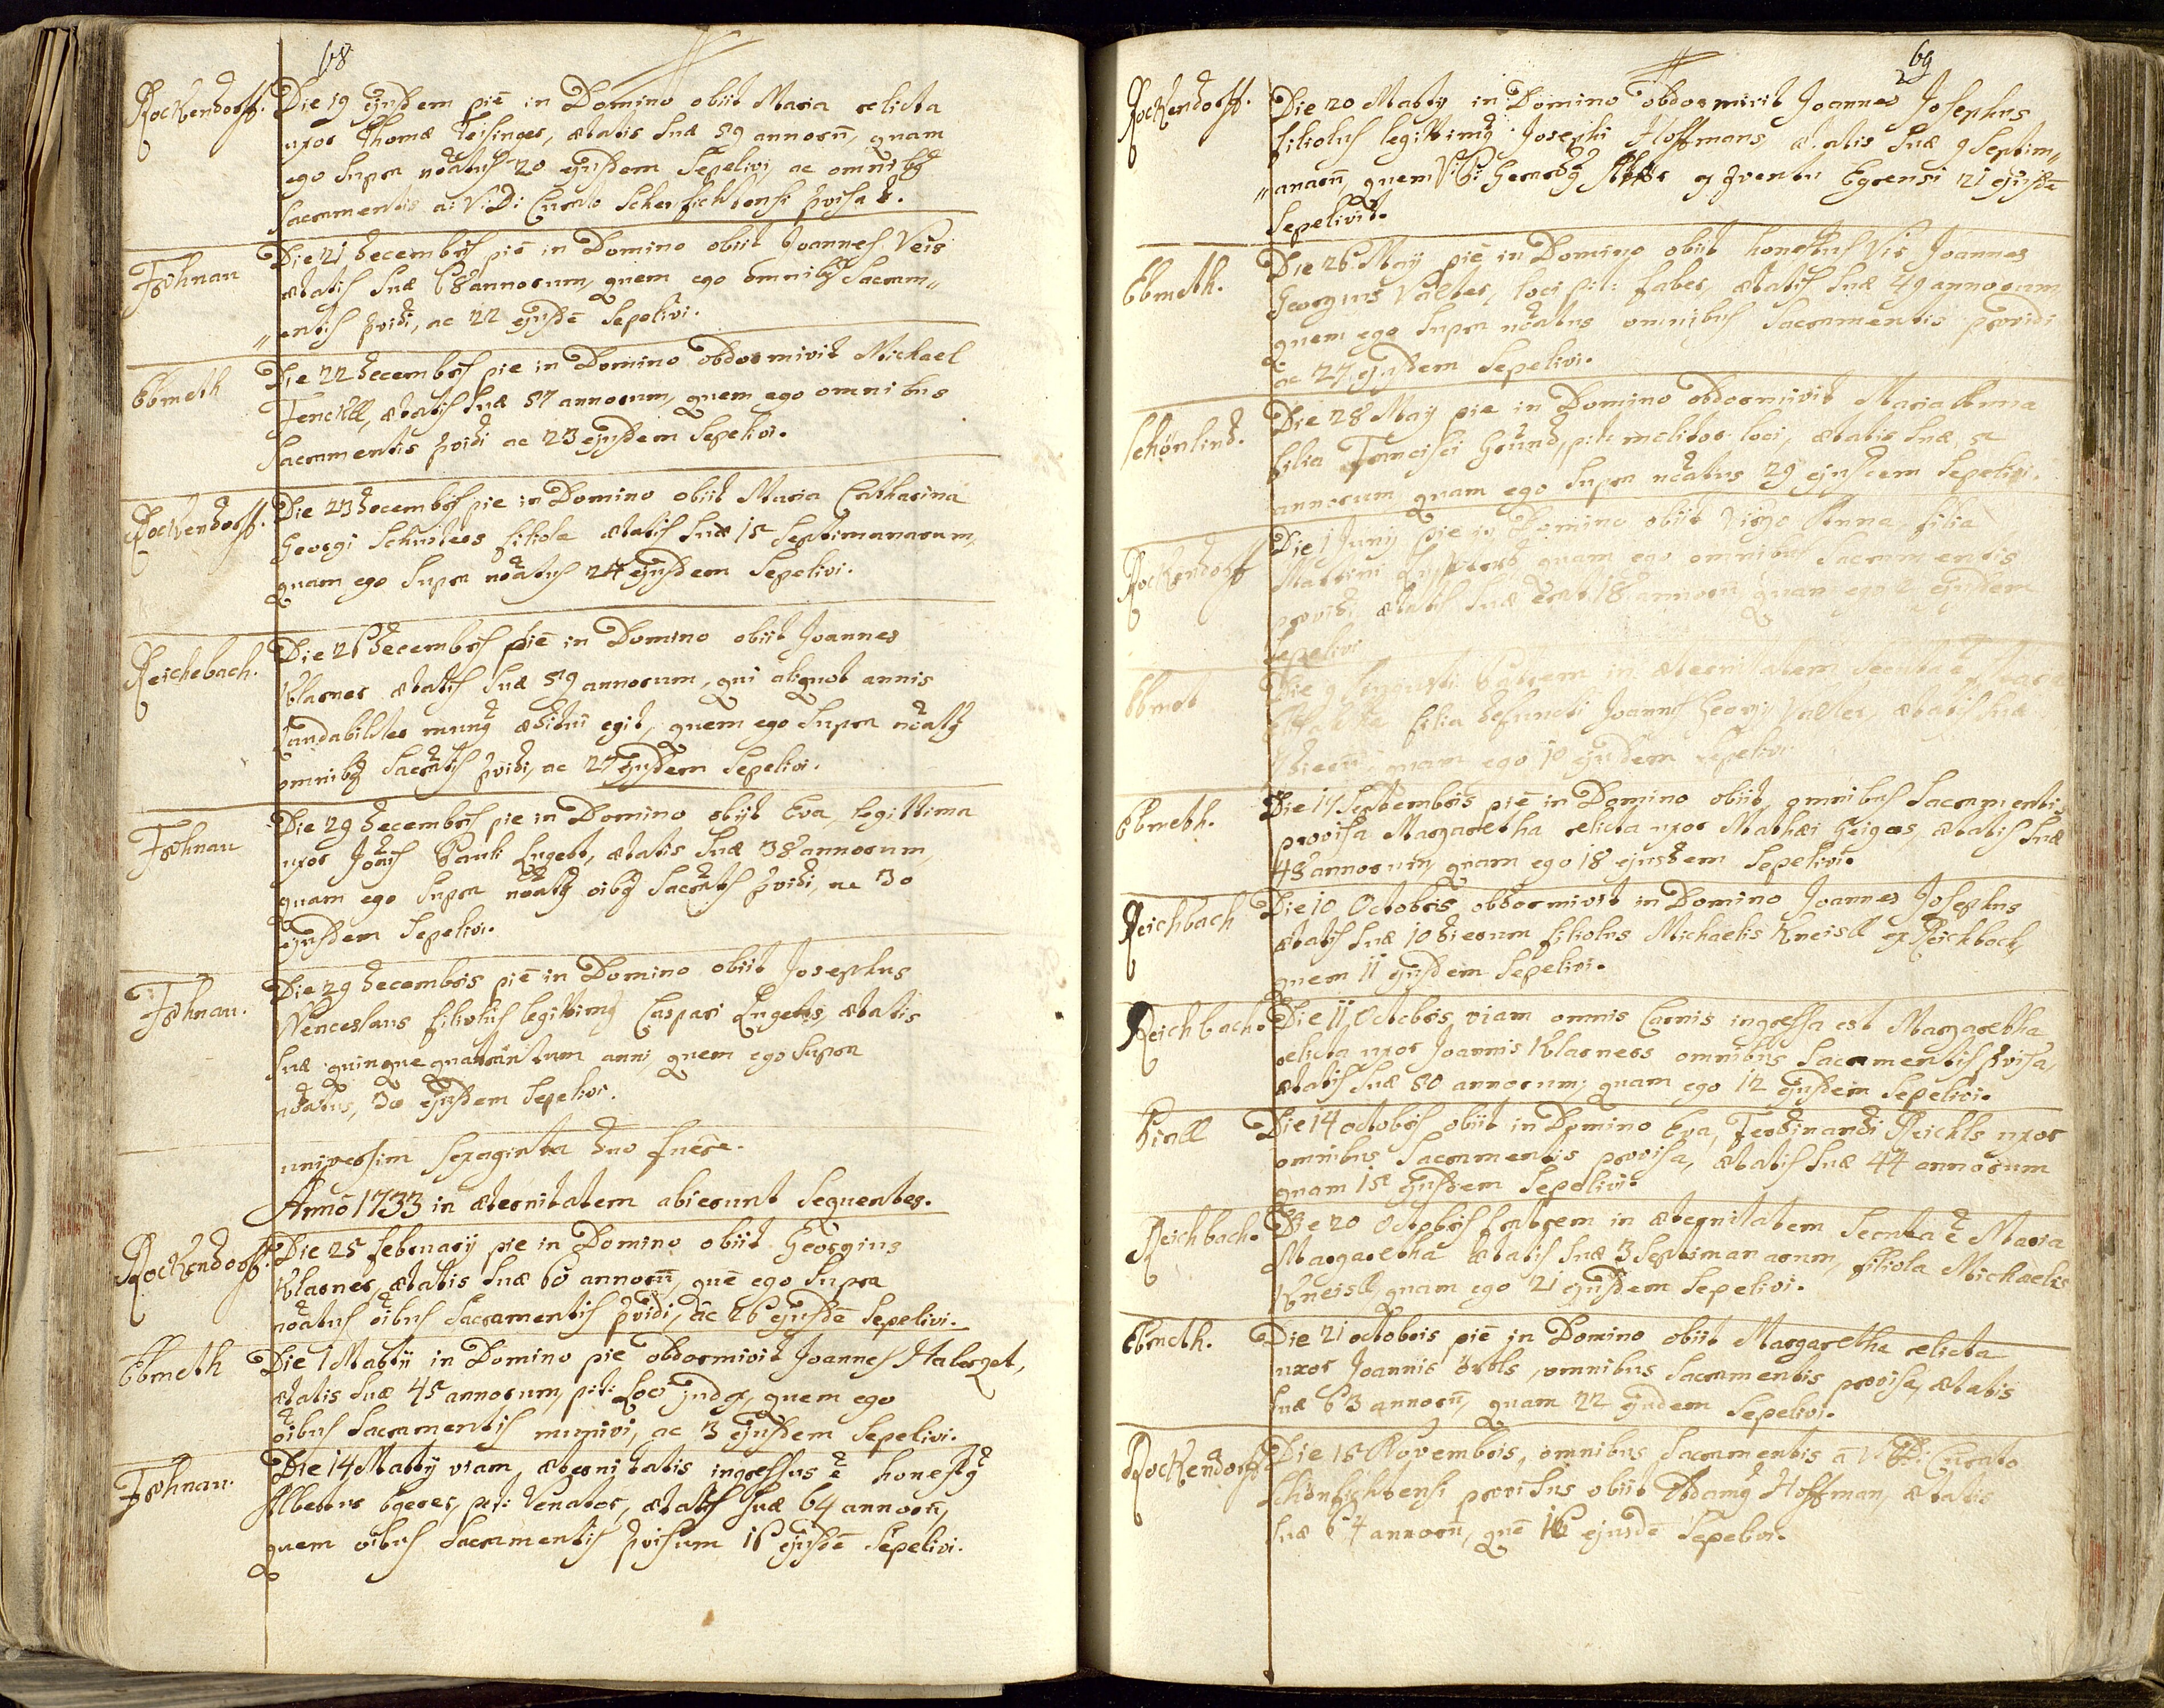 68
Rockendorff. Die 19 ejusdem piē in Domino obiit Maria relicta
uxor Thomæ Teisinger, ætatis suæ 59 annorū, quam
ego supra nōatus 20 ejusdem sepelivi, ac omnibq
Sacramentis a: V: D: Curato
Frohnau Die 21 decembris piē in Domino obiit Joannes Veis
ætatis suæ 68 annorum, quem ego omnibq Sacram„
„entis pvidi, ac 22 ejusdē sepelivi.
Ebmeth Die 22 decembris pie in Domino obdormivit Michael
ætatis suæ 57 annorum, quem ego omnibus
Sacramentis pvidi ac 23 ejusdem sepelivi.
Rockendorff. Die 23 decembris pie in Domino obiit Maria Catharina
Georgi filiola ætatis suæ 15 septimanarum,
quam ego supra nōatus 24 ejusdem sepelivi.
Reichebach. Die 26 decembris piē in Domino obiit Joannes
Klarner ætatis suæ 59 annorum, qui aliquot annis
Laudabiliter munq ædituī egit, quem ego supra nōatq
omnibq Sacrātis pvidi, ac 27 ejusdem sepelivi.
Frohnau Die 29 decembris pie in Domino obijt Eva, legittima
uxor Joānis Pauli Lugert, ætatis suæ 38 annorum,
quam ego supra nōatq oībq Sacrātis pvidi, ac 30
ejusdem sepelivi.
Frohnau. Die 29 decembris piē in Domino obiit Josephus
Wenceslaus filiolus legittimq Caspari Lugerts, ætatis
suæ quinque anni, quem ego supra
nōatus, 30 ejusdem sepelivi.
universim sexaginta duo fuēre.
Annō 1733 in æternitatem abierunt sequentes.
Rockendorff. Die 25 february pie in Domino obiit Georgius
Klarner, ætatis suæ 60 annorū, quē ego supra
nōatus oībus Sacramentis pvidi, ac 26 ejusdē sepelivi.
Ebmeth Die 1 Martij in Domino pie obdormivit Joannes
ætatis suæ 45 annorum, p:t: Loci judex, quem ego
oībus Sacramentis munivi, ac 3 ejusdem sepelivi.
Frohnau. Die 14 Martij viam æternitatis ingressus ē honestq
Albertus Egerer, p:t: Venator, ætatis suæ 64 annorū,
quem oībus Sacramentis pvisum 16 ejusdē sepelivi.
69
Rockendorff. Die 20 Martij in Domino obdormivit Joannes Josephus
filiolus legittimq Josephi Hoffmans, ætatis suæ 9 septim„
„anarū quem Egrensi 21 ejusdē
sepelivit.
Ebmeth. Die 26 Maij piē in Domino obiit honestus Vir Joannes
Georgius Valter, loci p:t: faber, ætatis suæ 49 annorum
quem ego supra nōatus omnibus Sacramentis providi
ac 27 ejusdem sepelivi.
Schönlind. Die 28 Maij pie in Domino obdormivit Maria Anna
filia Francisci Gründ, p:t: molitor loci, ætatis suæ 5
annorum quam ego supra nōatus 29 ejusdem sepelivi.
Rockendorff Die 1 Junij pie in Domino obiit Virgo Anna filia
Martini quam ego omnibus Sacramentis
providi, ætatis suæ erat 18 annorū quam ego 2 ejusdem
sepelivi
Ebmet Die 9 Augusti Patrem in æternitatem secuta ē
filia defuncti Joannis Georgij Valter, ætatis suæ
quam ego 10 ejusdem sepelivi
Ebmeth. Die 17 Septembris piē in Domino obiit, omnibus Sacramentis
provisa Margaretha relicta uxor Mathæi Geigers, ætatis suæ
48 annorum, quam ego 18 ejusdem sepelivi.
Reichbach Die 10 Octobris obdormivit in Domino Joannes Josephus
ætatis suæ 10 dierum filiolus Michaelis Kneisll ex Reichbach,
quem 11 ejusdem sepelivi.
Reichbach. Die 11 Octobris viam omnis Carnis ingressa est Margaretha
relicta uxor Joannis Klarners omnibus Sacramentis pvisa,
ætatis suæ 80 annorum, quam ego 12 ejusdem sepelivi.
Die 14 octobris obiit in Domino Eva, Ferdinandi Reichls uxor
omnibus Sacramentis provisa, ætatis suæ 44 annorum
quam 15 ejusdem sepelivi.
Reichbach. Die 20 Octobris fratrem in æternitatem secuta ē Maria
Margaretha ætatis suæ 3 septimanarum, filiola Michaelis
Kneisll, quam ego 21 ejusdem sepelivi.
Ebmeth. Die 21 octobris piē in Domino obiit Margaretha relicta
uxor Joannis omnibus Sacramentis provisa, ætatis
suæ 63 annorū, quam 22 ejusdem sepelivi.
Rockendorff Die 15 Novembris, omnibus Sacramentis ā Curato
Schönfichtensi provisus obiit Adamq Hoffman, ætatis
suæ 64 annorū, quē 16 ejusdē sepelivi.